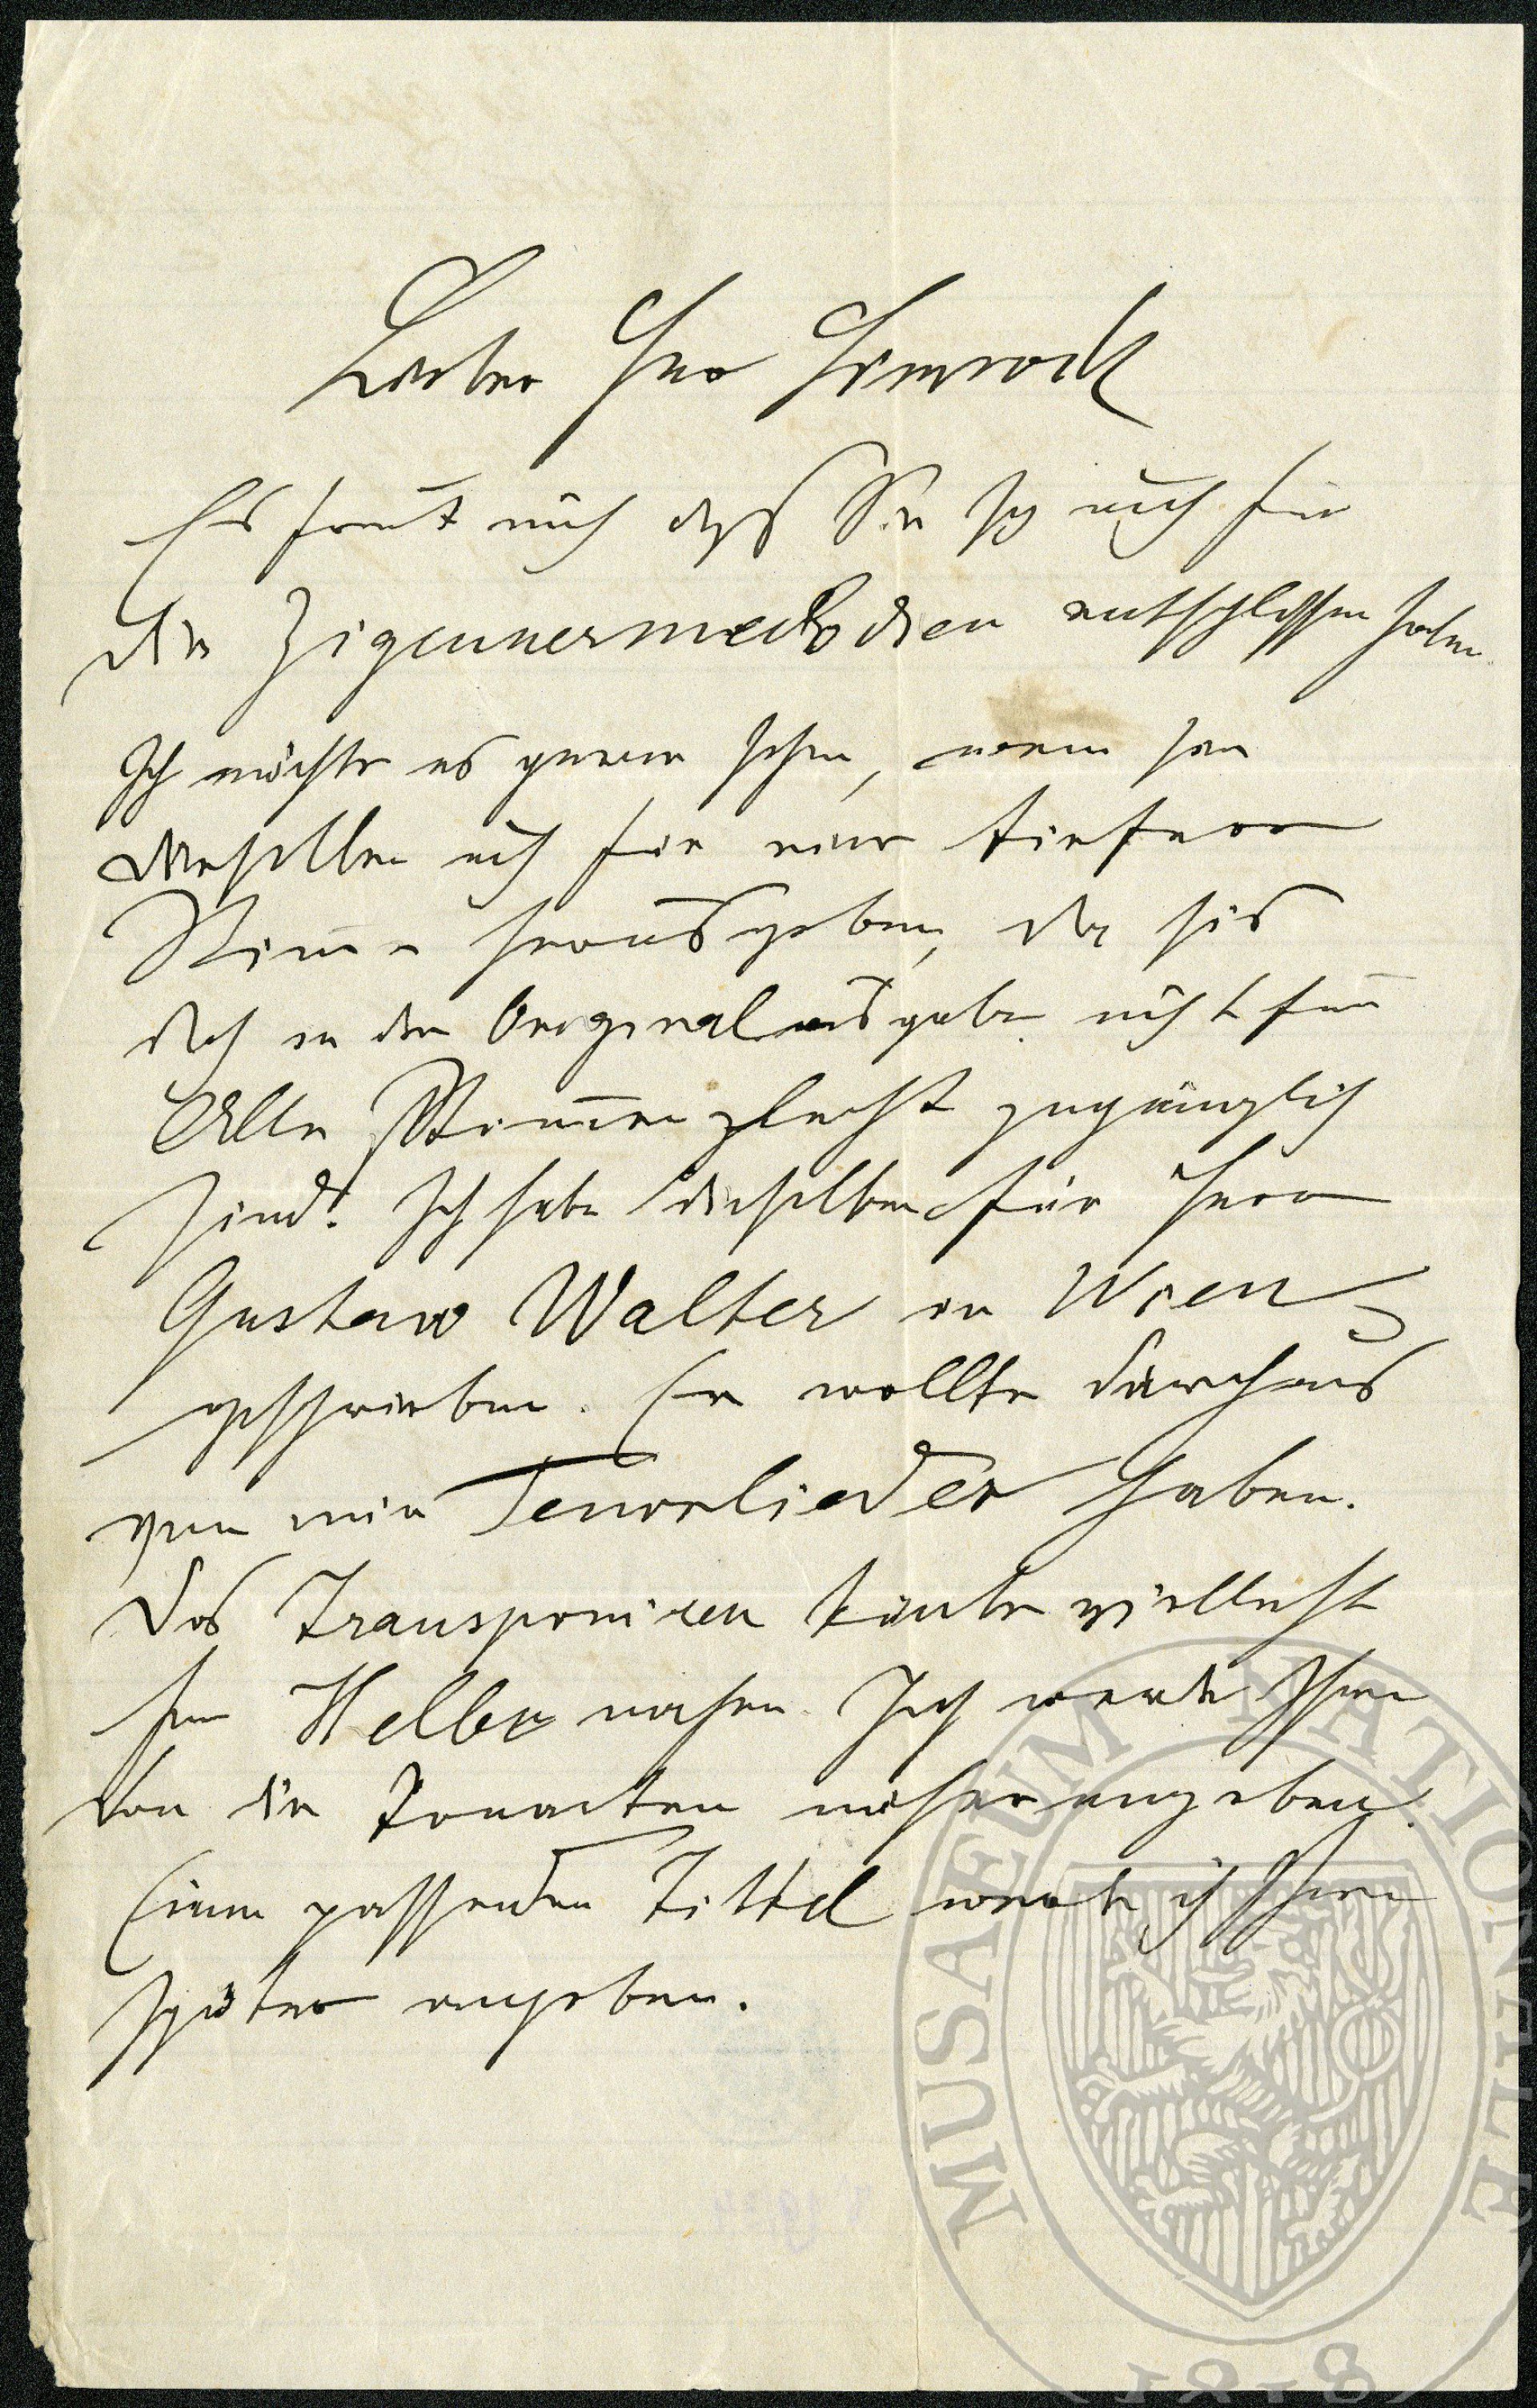 Lieber Herr Simrock
Es freut mich daß Sie sich auch für
die Zigeunermelodien entschlossen haben.
Ich möchte es gerne sehen, wenn Sie
dieselben auch für eine tiefere
Stimme herausgeben, da sie
doch in der Originalausgabe nicht für
Alle Stimmen gleich zugänglich
sind. Ich habe dieselben für Herrn
Gustav Walter in Wien
geschrieben. Er wollte durchaus
von mir Tenorlieder haben.
Das Transponiren könte vielleicht
Herr Keller machen. Ich werde Ihnen
dan die Tonarten näher angeben.
Einen passenden Tittel werde ich Ihnen
später angeben.
MUSAEUM NATIONALE
1818